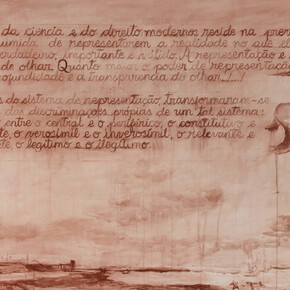 da ciência e do direito modernos reside na prer
umida de representarem a realidade no que el
erdadeiro, importante e nítido. A representação é
de olhar. Quanto maior o poder de representação
ofundidade e a transparencia do olhar
do sistema de representação, transformaram-se
das discriminações própias de um tal sistema:
entre o central e o periférico, o constitutivo e
te, o verosímil e o inverosímil, o relevante e
te, o legítimo e o ilegítimo.